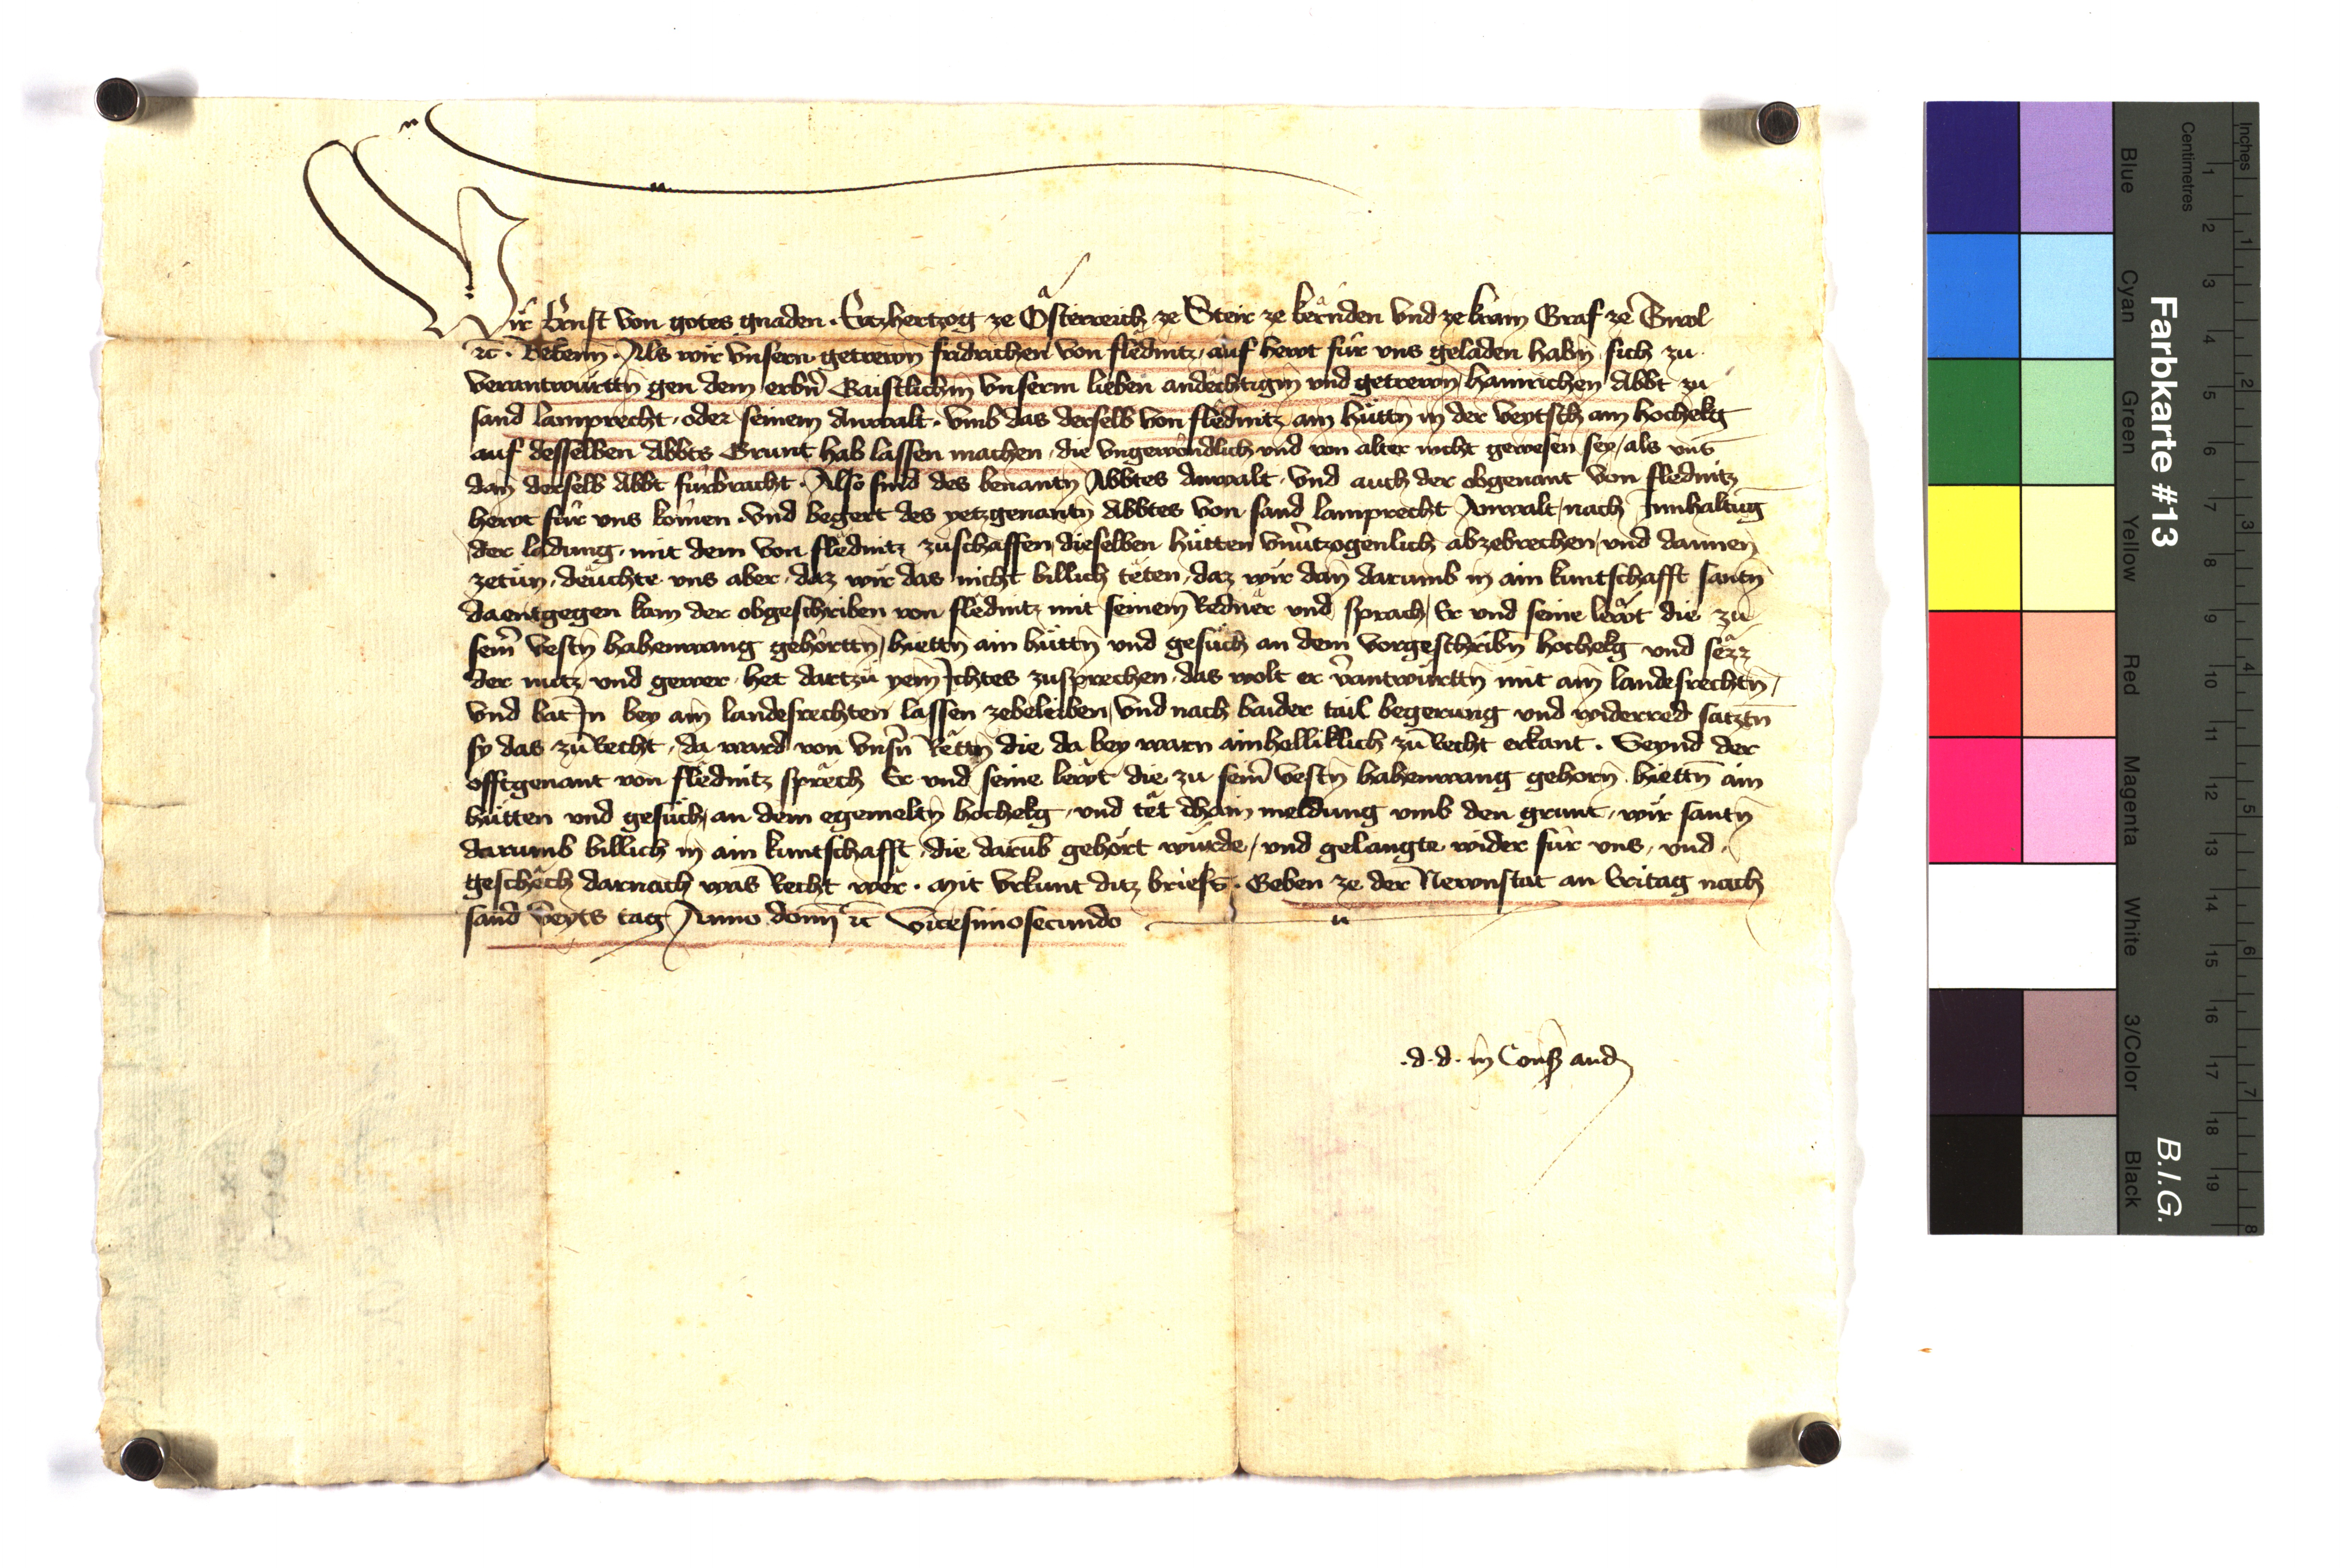 Wir Ernst von gotes gnaden · Ertzhertzog ze Österreich ze Steir ze kernden vnd ze krain Graf ze Tirol
ꝛc̄ · Bekenn̄ · Als wir vnsern getrewn̄ fridrichen von flednitz, auf hewt für vns geladen habn̄, sich zu
verantwürttn̄ gen dem erbn̄ Gaistlichn̄ vnserm lieben andechtign̄ vnd getrewn̄ hainrichen Abbt zu
sand lamprecht, oder seinem Anwalt · vmb das derselb von flednitz, ain hüttn̄ in der Veytsch am hochekg
auf desselben Abbts Grunt hab lassen machen, die vngewöndlich vnd von alter nicht gewesen sey, als vns
dan̄ derselb Abbt fürbracht · Also sind des benantn̄ Abbtes Anwalt, vnd auch der obgenant von flednitz
hewt für vns komen · vnd begert des yetzgenantn̄ Abbtes von sand lamprecht Anwalt, nach Innhaltūg
der ladung, mit dem von flednitz zuschaffen, dieselben hütten vnu̇tzogenlich abzebrechen, vnd dannen
zetün, deuchte vns aber, daz wir das nicht billich teten, daz wir dan̄ darumb in ain kuntschafft santn̄
daentgegen kam der obgeschriben von flednitz mit seinem Redner vnd sprach, Er vnd seine lewt die zu
sein̄ vestn̄ habenwang gehörttn̄, hiettn̄ ain hüttn̄ vnd gesüch an dem vorgeschribn̄ hochekg vnd sezz
der nutz vnd gewer, het dartzü yem̄ Ichtes zusprechen, das wolt er v̄antwürttn̄ mit ain̄ landesrechtn̄,
vnd bat In bey ain̄ landesrechten lassen zebeleiben, vnd nach baider tail begerung vnd widerred satztn̄
sy das zū Recht, da ward von vnsn̄ Rettn̄ die da bey warn ainhelliklich zū Recht erkant · Seynd der
offtgenant von flednitz sprech Er vnd seine lewt die zu sein̄ vestn̄ habenwang gehorn̄ hiettn̄ ain
hütten vnd gesüch, an dem egemeltn̄ hochekg, vnd tet dhain meldung vmb den grunt, wir santn̄
darumb billich in ain kuntschafft, die darūb gehört würde, vnd gelangte wider für vns, vnd
geschech darnach was Recht wer · Mit vrkunt ditz briefs · Geben ze der Newnstat an Vritag nach
sand Veyts tag Anno domī ꝛc̄ vicesimosecundo
·d·d· in Cons̄ aud
Farbkarte #13
B.I.G.
Centimetres
Inches
1 2 3 4 5 6 7 8 9 10 11 12 13 14 15 16 17 18 19
1 2 3 4 5 6 7 8
Blue
Cyan
Green
Yellow
Red
Magenta
White
3/Color
Black